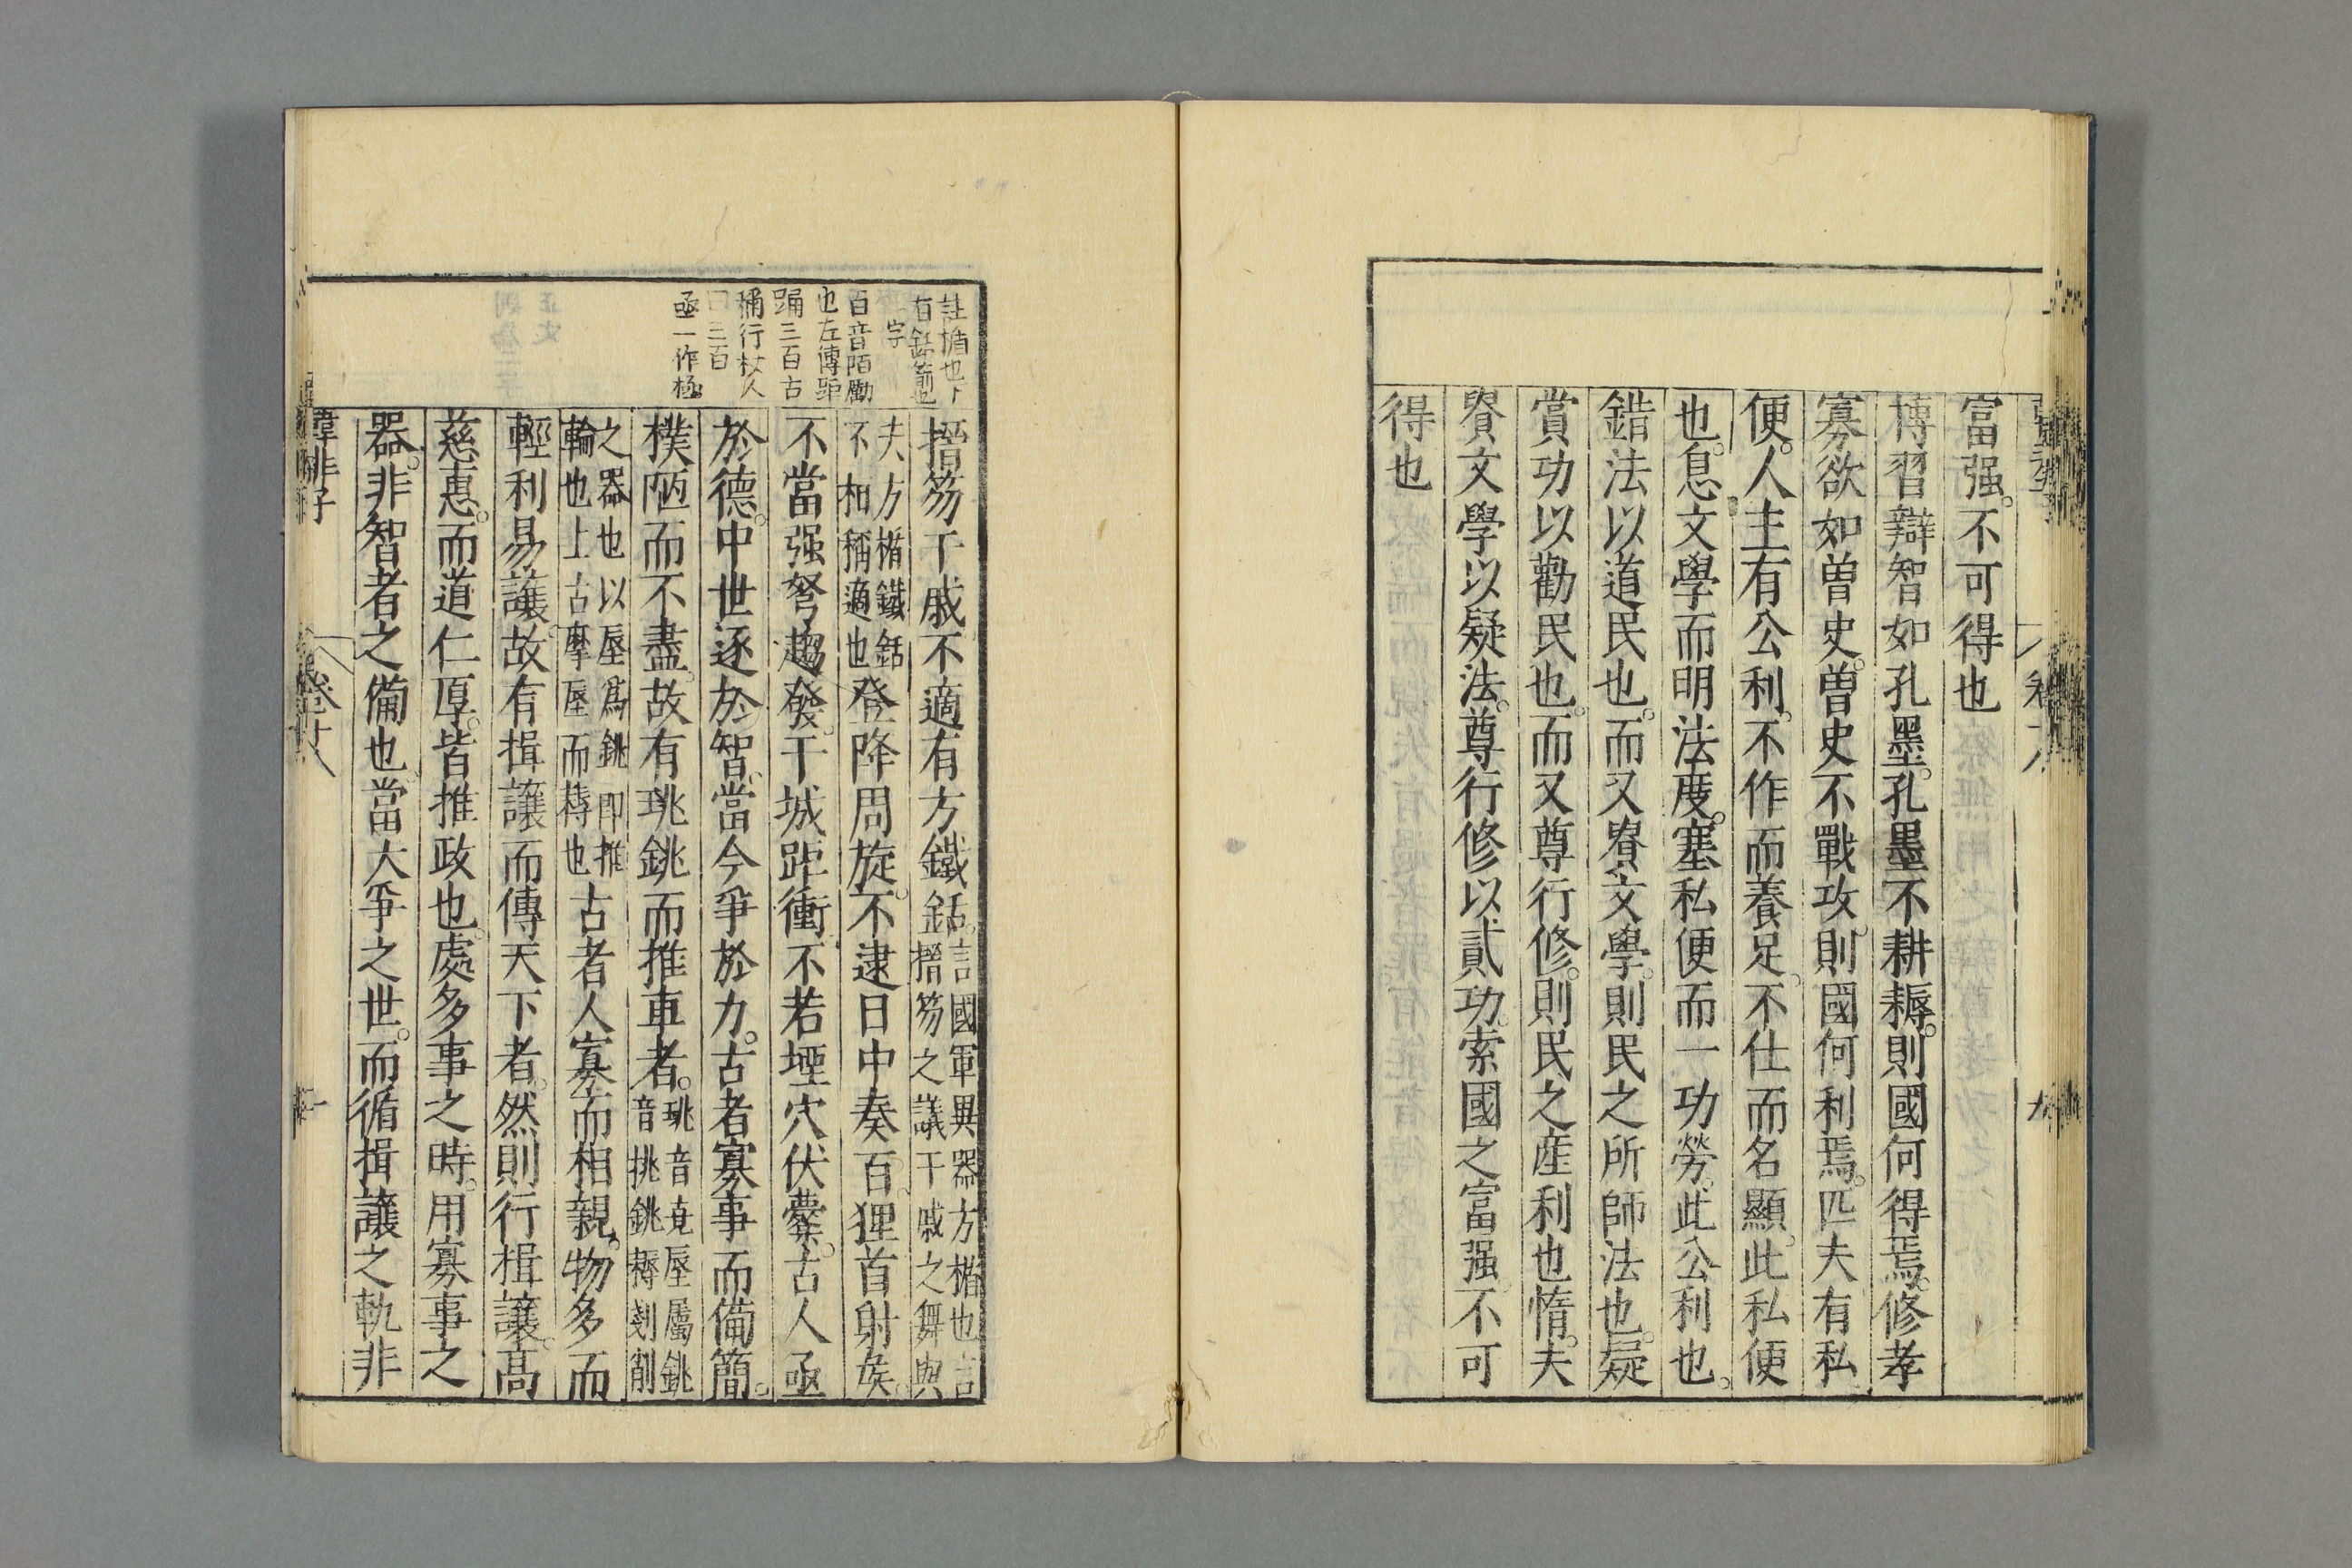 富强。不可得也
博習辯智如孔墨。孔墨不耕耨。則國何得焉。修孝
寡欲如曽史。曽史不戰攻。則國何利焉。匹夫有私
便。人主有公利。不作而養足。不仕而名顯。此私便
也。息文學而明法度。塞私便而一功勞。此公利也。
錯法以道民也。而又貴文學。則民之所師法也。疑
賞功以勸民也。而又尊行修。則民之產利也惰。夫
貴文學以疑法。尊行修以貳功。索國之富强。不可
得也
註楯也下
有銛箭也
一字
百音陌勵
也左傳距
踊三百古
稱行杖人
三百
亟一作極
搢笏干戚不適有方鐵銛。
言國軍異器方楯也言
搢笏之議干戚之舞與
夫方楯鐵銛
不相稱適也
登降周旋。不逮日中奏百。狸首射侯。
不當强弩趨發。干城距衝。不若堙穴伏櫜。古人亟
於德。中世逐於智。當今爭於力。古者寡事而備簡。
樸陋而不盡。故有珧銚而推車者。
珧音堯蜃屬銚
音挑銚耨剗削
之器也以蜃爲銚即推
輪也上古摩蜃而耨也
古者人寡而相親。物多而
輕利易讓。故有揖讓而傳天下者。然則行揖讓。高
慈惠。而道仁厚。皆推政也。處多事之時。用寡事之
器。非智者之備也。當大爭之世。而循揖讓之軌。非
韓非子
卷十八